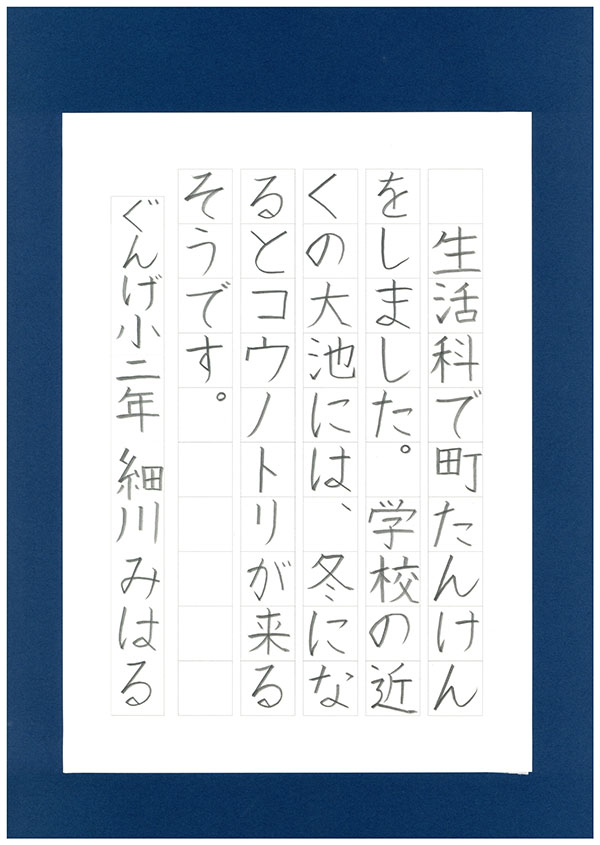 生活科で町たんけん
をしました。学校の近
くの大池には、冬にな
るとコウノトリが来る
そうです。
ぐんげ小二年 細川みはる